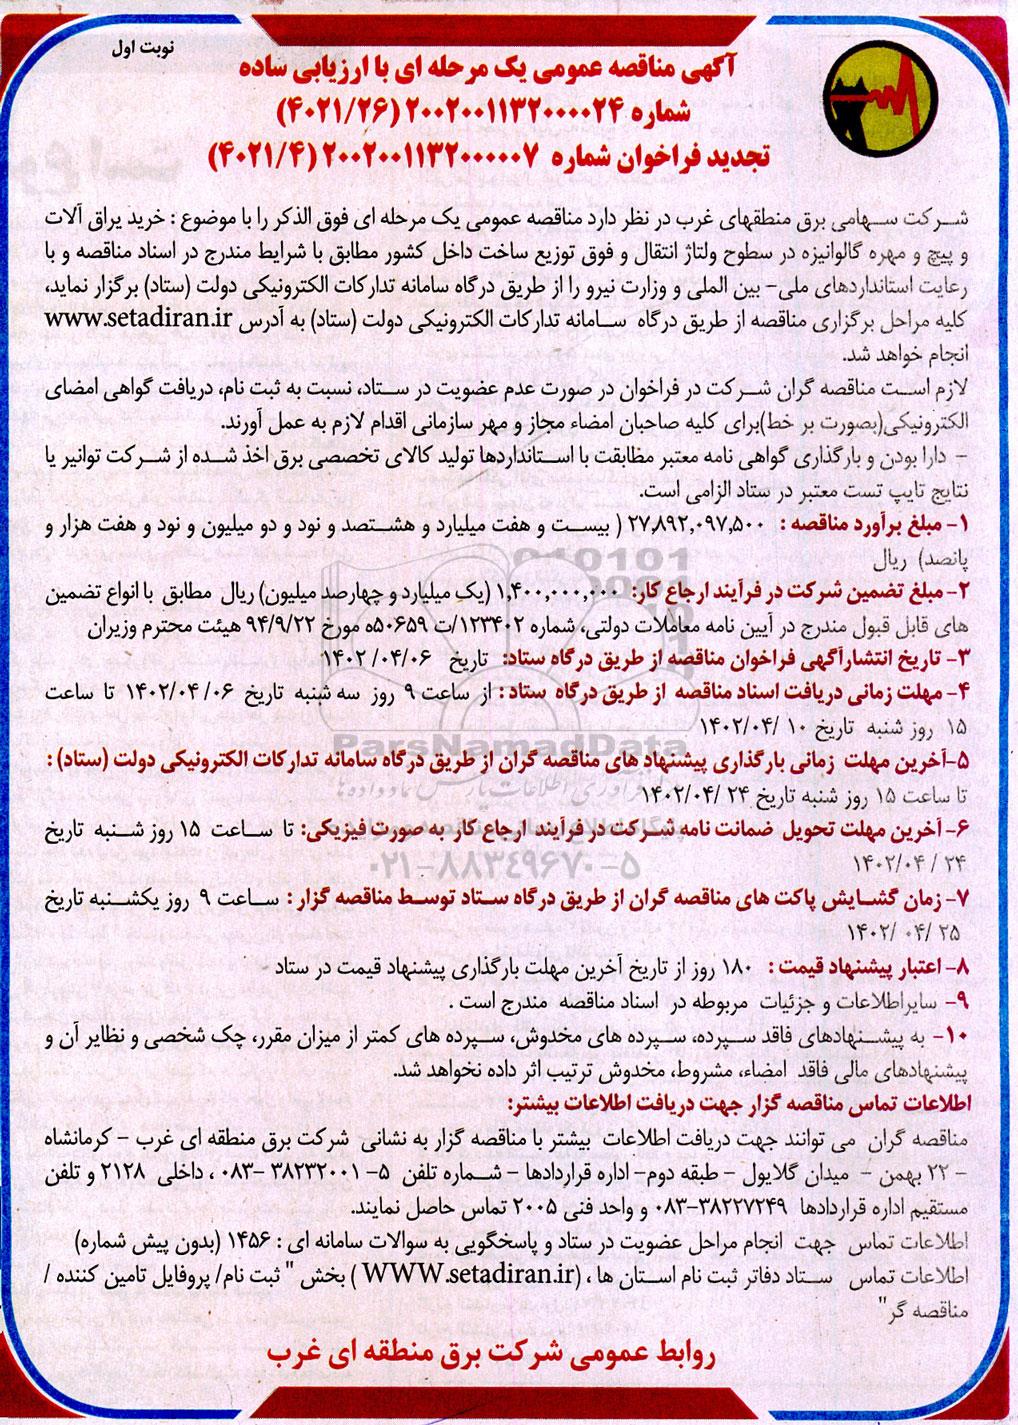 نوبت اول
آگهی مناقصه عمومی یک مرحله ای با ارزیابی ساده
شماره ۲۰۰۲۰۰۱۱۳۲۰۰۰۰۲۴ (۴۰۲۱/۲۶)
تجدید فراخوان شماره ۲۰۰۲۰۰۱۱۳۲۰۰۰۰۰۷ (۴۰۲۱/۴)
شرکت سهامی برق منطقهای غرب در نظر دارد مناقصه عمومی یک مرحله ای فوق الذکر را با موضوع : خرید یراق آلات
و پیچ و مهره گالوانیزه در سطوح ولتاژ انتقال و فوق توزیع ساخت داخل کشور مطابق با شرایط مندرج در اسناد مناقصه و با
رعایت استانداردهای ملی- بین المللی و وزارت نیرو را از طریق درگاه سامانه تدارکات الکترونیکی دولت (ستاد) برگزار نماید،
کلیه مراحل برگزاری مناقصه از طریق درگاه سامانه تدارکات الکترونیکی دولت (ستاد) به آدرس www.setadiran.ir
انجام خواهد شد.
لازم است مناقصه گران شرکت در فراخوان در صورت عدم عضویت در ستاد، نسبت به ثبت نام، دریافت گواهی امضای
الکترونیکی(بصورت بر خط)برای کلیه صاحبان امضاء مجاز و مهر سازمانی اقدام لازم به عمل آورند.
- دارا بودن و بارگذاری گواهی نامه معتبر مطابقت با استانداردها تولید کالای تخصصی برق اخذ شده از شرکت توانیر یا
نتایج تایپ تست معتبر در ستاد الزامی است.
۱- مبلغ برآورد مناقصه : ۲۷,۸۹۲,۰۹۷,۵۰۰ ( بیست و هفت میلیارد و هشتصد و نود و دو میلیون و نود و هفت هزار و
پانصد) ریال
۲- مبلغ تضمین شرکت در فرآیند ارجاع کار: ۱,۴۰۰,۰۰۰,۰۰۰ (یک میلیارد و چهارصد میلیون) ریال مطابق با انواع تضمین
های قابل قبول مندرج در آیین نامه معاملات دولتی، شماره ۱۲۳۴۰۲/ت ۵۰۶۵۹ه مورخ ۹۴/۹/۲۲ هیئت محترم وزیران
۳- تاریخ انتشارآگهی فراخوان مناقصه از طریق درگاه ستاد: تاریخ ۱۴۰۲/۰۴/۰۶
۴- مهلت زمانی دریافت اسناد مناقصه از طریق درگاه ستاد : از ساعت ۹ روز سه شنبه تاریخ ۱۴۰۲/۰۴/۰۶ تا ساعت
۱۵ روز شنبه تاریخ ۱۴۰۲/۰۴/۱۰
۵-آخرین مهلت زمانی بارگذاری پیشنهاد های مناقصه گران از طریق درگاه سامانه تدارکات الکترونیکی دولت (ستاد) :
تا ساعت ۱۵ روز شنبه تاریخ ۱۴۰۲/۰۴/۲۴
۶- آخرین مهلت تحویل ضمانت نامه شرکت در فرآیند ارجاع کار به صورت فیزیکی: تا ساعت ۱۵ روز شنبه تاریخ
۱۴۰۲/۰۴/۲۴
۷- زمان گشایش پاکت های مناقصه گران از طریق درگاه ستاد توسط مناقصه گزار : ساعت ۹ روز یکشنبه تاریخ
۱۴۰۲/۰۴/۲۵
۸- اعتبار پیشنهاد قیمت : ۱۸۰ روز از تاریخ آخرین مهلت بارگذاری پیشنهاد قیمت در ستاد
۹- سایراطلاعات و جزئیات مربوطه در اسناد مناقصه مندرج است .
۱۰- به پیشنهادهای فاقد سپرده، سپرده های مخدوش، سپرده های کمتر از میزان مقرر، چک شخصی و نظایر آن و
پیشنهادهای مالی فاقد امضاء، مشروط، مخدوش ترتیب اثر داده نخواهد شد.
اطلاعات تماس مناقصه گزار جهت دریافت اطلاعات بیشتر:
مناقصه گران می توانند جهت دریافت اطلاعات بیشتر با مناقصه گزار به نشانی شرکت برق منطقه ای غرب - کرمانشاه
- ۲۲ بهمن - میدان گلایول - طبقه دوم- اداره قراردادها - شماره تلفن ۵- ۳۸۲۳۲۰۰۱ -۰۸۳ ، داخلی ۲۱۲۸ و تلفن
مستقیم اداره قراردادها ۳۸۲۲۷۲۴۹-۰۸۳ و واحد فنی ۲۰۰۵ تماس حاصل نمایند.
اطلاعات تماس جهت انجام مراحل عضویت در ستاد و پاسخگویی به سوالات سامانه ای : ۱۴۵۶ (بدون پیش شماره)
اطلاعات تماس ستاد دفاتر ثبت نام استان ها ، (WWW.setadiran.ir) بخش " ثبت نام/ پروفایل تامین کننده /
مناقصه گر"
روابط عمومی شرکت برق منطقه ای غرب
ParsNamadData
۰۲۱-۸۸۳۴۹۶۷۰-۵